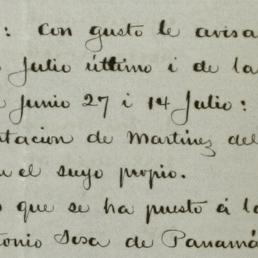 : Con gusto le avisa
Julio último i de la
Junio 27 i 14 Julio:
tacion de Martinez del
el suyo propio.
que se ha puesto á la
tonio Sosa de Panamá